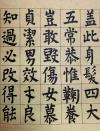 蓋此身髮四大
五常恭惟鞠養
豈敢毀傷女慕
貞潔男效才良
知過必改得能